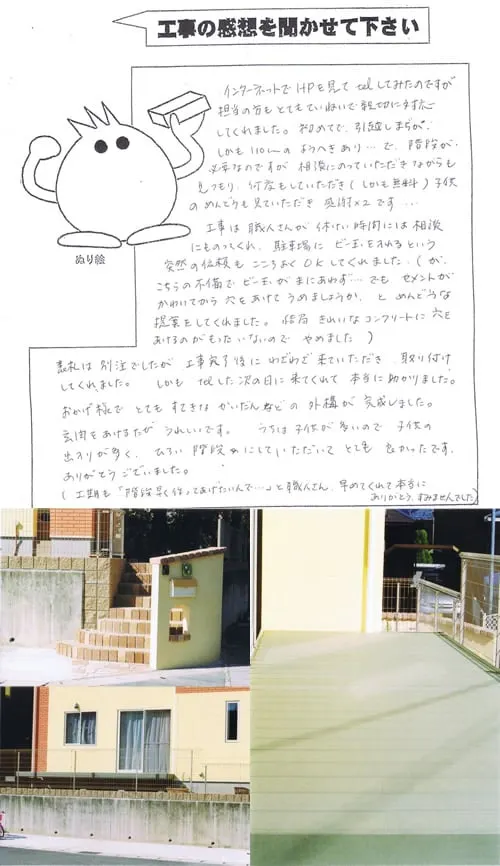 工事の感想を聞かせて下さい
インターネットでHPを見てtelしてみたのですが
担当の方もとてもていねいで親切に対応
してくれました。初めてで、引越しまぢか、
しかも110cmのようへきあり…で、階段が
必要なのですが 相談にのっていただきながらも
見つもり、何度もしていただき(しかも無料)子供
のめんどうも見ていただき 感謝×2です…
工事は職人さんが休みたい時間には相談
にものってくれ、駐車場に ビー玉を入れるという
突然の依頼も こころよくOKしてくれました。(が、
こちらの不備で ビー玉が まにあわず…でも セメントが
かわいてから 穴をあけて うめましょうか、と めんどうな
提案をしてくれました。結局 きれいなコンクリートに穴を
あけるのが もったいないので やめました )
ぬり絵
表札は 別注でしたが 工事完了後に わざわざ 来ていただき 取り付け
してくれました。 しかも telした次の日に来てくれて 本当に助かりました。
おかげ様で とても すてきな かいだんなどの 外構が 完成しました。
玄関をあけるたが うれしいです。 うちは子供が多いので 子供の
出入りが多く、 ひろい 階段にしていただいて とても 良かったです。
ありがとうございました。
(工期も「階段早く作ってあげたいんで…」と職人さん、早めてくれて本当に
ありがとう、すみませんでした)